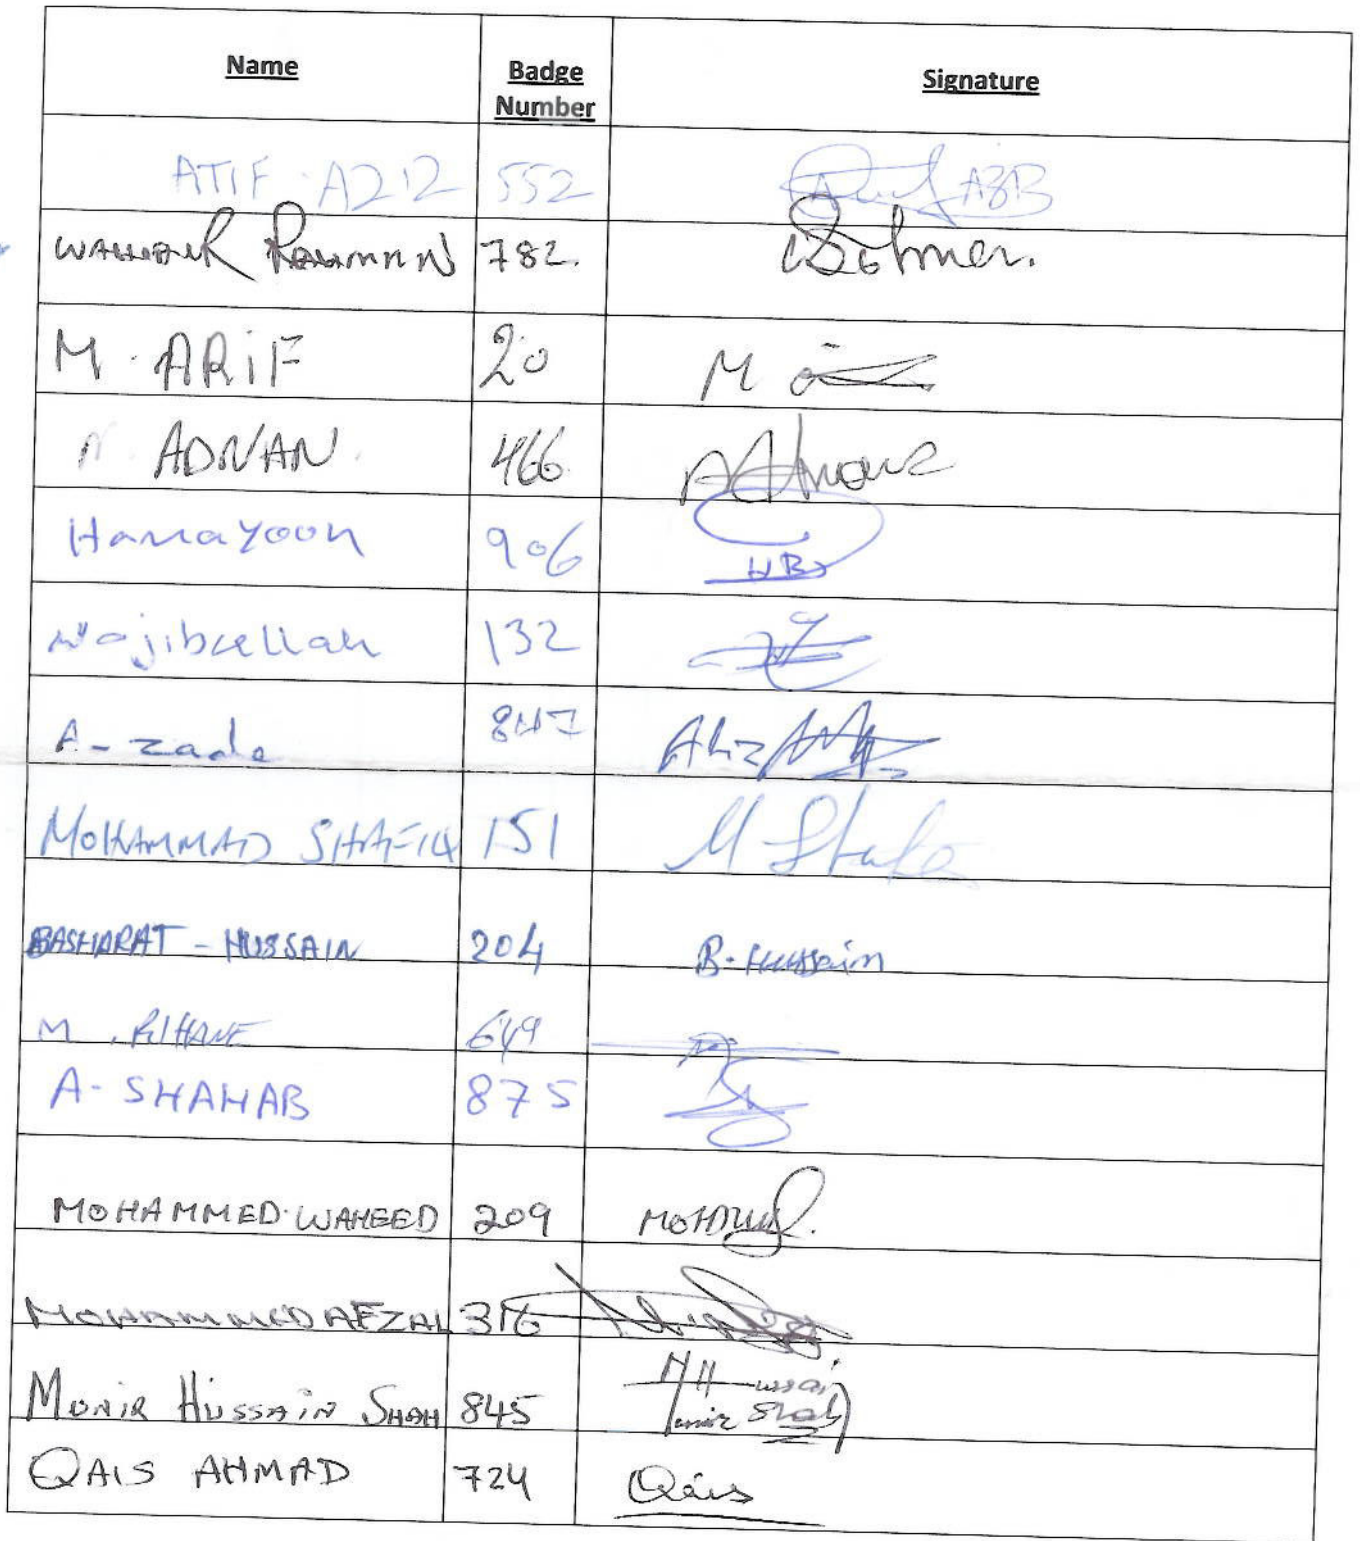 Name Badge Number Signature
ATIF. AZIZ 552
RAHMAN 782.
M. ARiF 20 M
ADNAN. 466
Hamayoon 906 HB
Najibullah 132
A-zada 847
MOHAMMAD SHAFIQ 151 M
BASHARAT - HUSSAIN 204 B-Hussain
M. RIHANE 649
A- SHAHAB 875
MOHAMMED.WAHEED 209
MOHAMMED AFZAL 316
MUNIR HUSSAIN SHAH 845
QAIS AHMAD 724 Qais